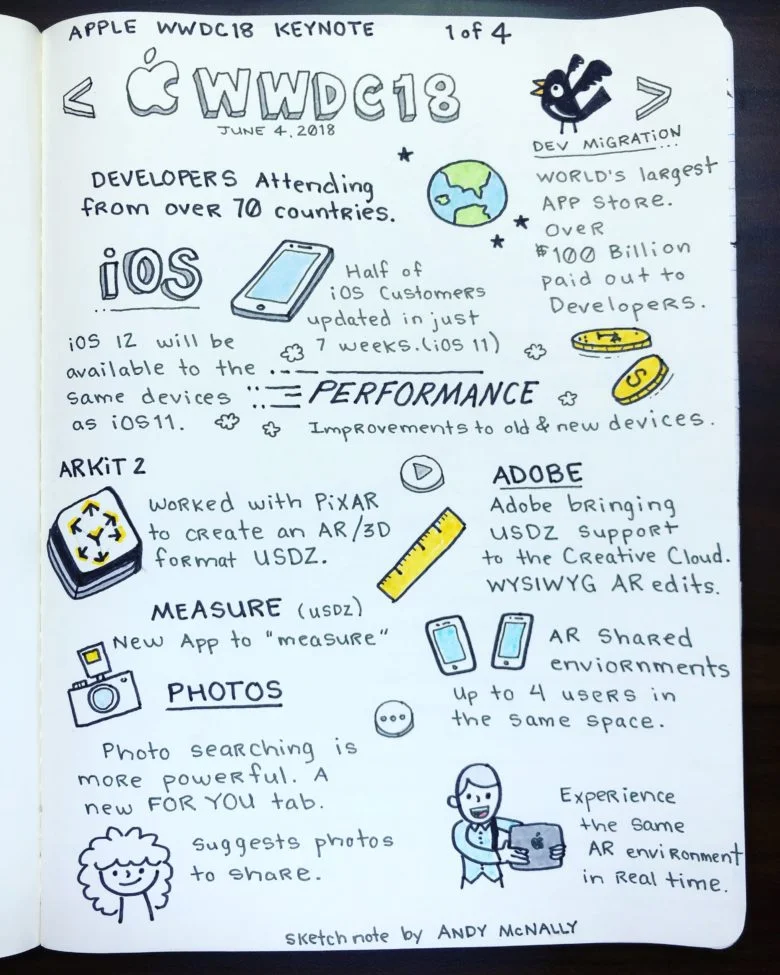 APPLE WWDC18 KEYNOTE 1 of 4
< WWDC18 >
JUNE 4, 2018
DEV MIGRATION
DEVELOPERS Attending
from over 70 countries.
WORLD'S largest
APP Store.
Over
$100 Billion
paid out to
Developers.
iOS
Half of
iOS Customers
updated in just
7 weeks. (iOS 11)
iOS 12 will be
available to the
same devices
as iOS11.
PERFORMANCE
Improvements to old & new devices.
ARKiT 2
worked with PiXAR
to create an AR/3D
format USDZ.
ADOBE
Adobe bringing
USDZ support
to the Creative Cloud.
WYSIWYG AR edits.
MEASURE (USDZ)
New App to "measure"
AR Shared
enviornments
up to 4 users in
the same space.
PHOTOS
Photo searching is
more powerful. A
new FOR YOU tab.
suggests photos
to share.
Experience
the same
AR environment
in Real time.
sketch note by ANDY McNALLY